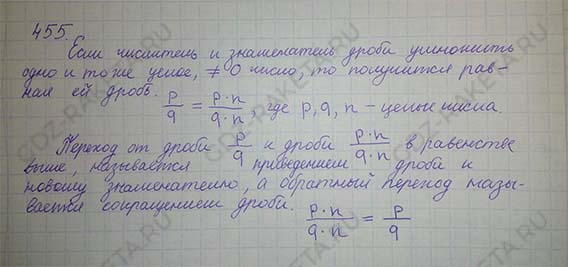 455.
Если числитель и знаменатель дроби умножить
одно и то же целое, ≠0 число, то получится рав-
ная ей дробь.
p/q = p·n/q·n, где p, q, n – целые числа.
Переход от дроби p/q к дроби p·n/q·n в равенстве
выше, называется приведением дроби к
новому знаменателю, а обратный переход назы-
вается сокращением дроби.
p·n/q·n = p/q
GDZ-RAKETA.RU